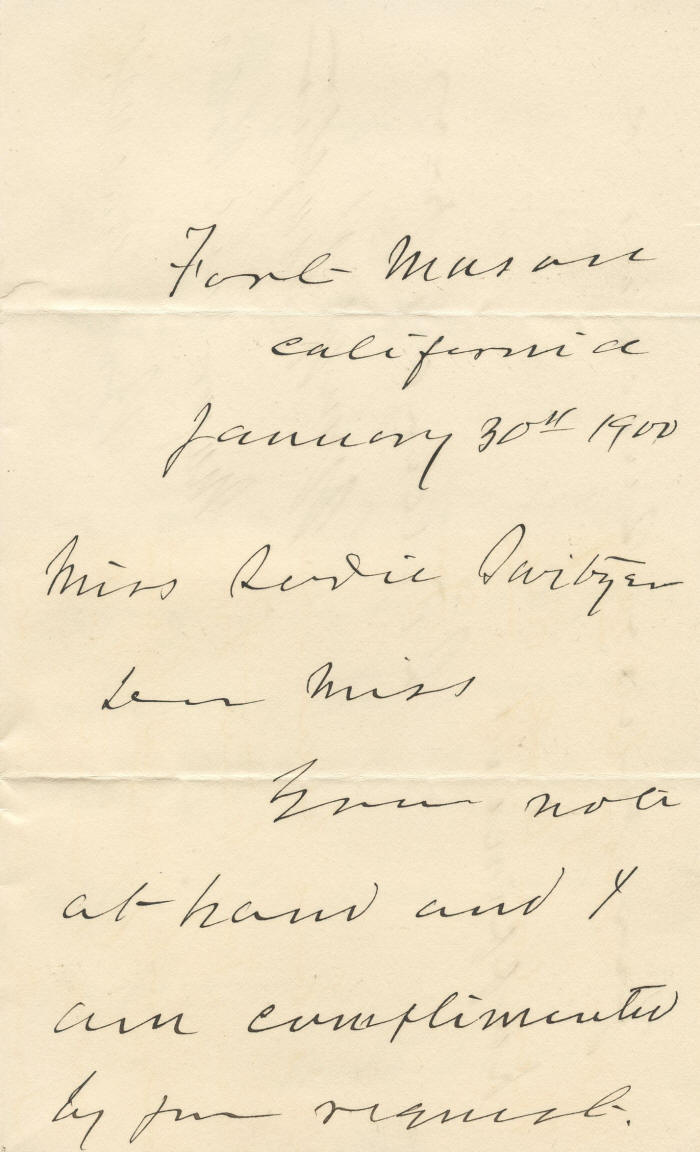 Fort Mason
California
January 30th 1900
Miss Sadie Switzer
Dear Miss
Your note
at hand and I
am complimented
by your request.